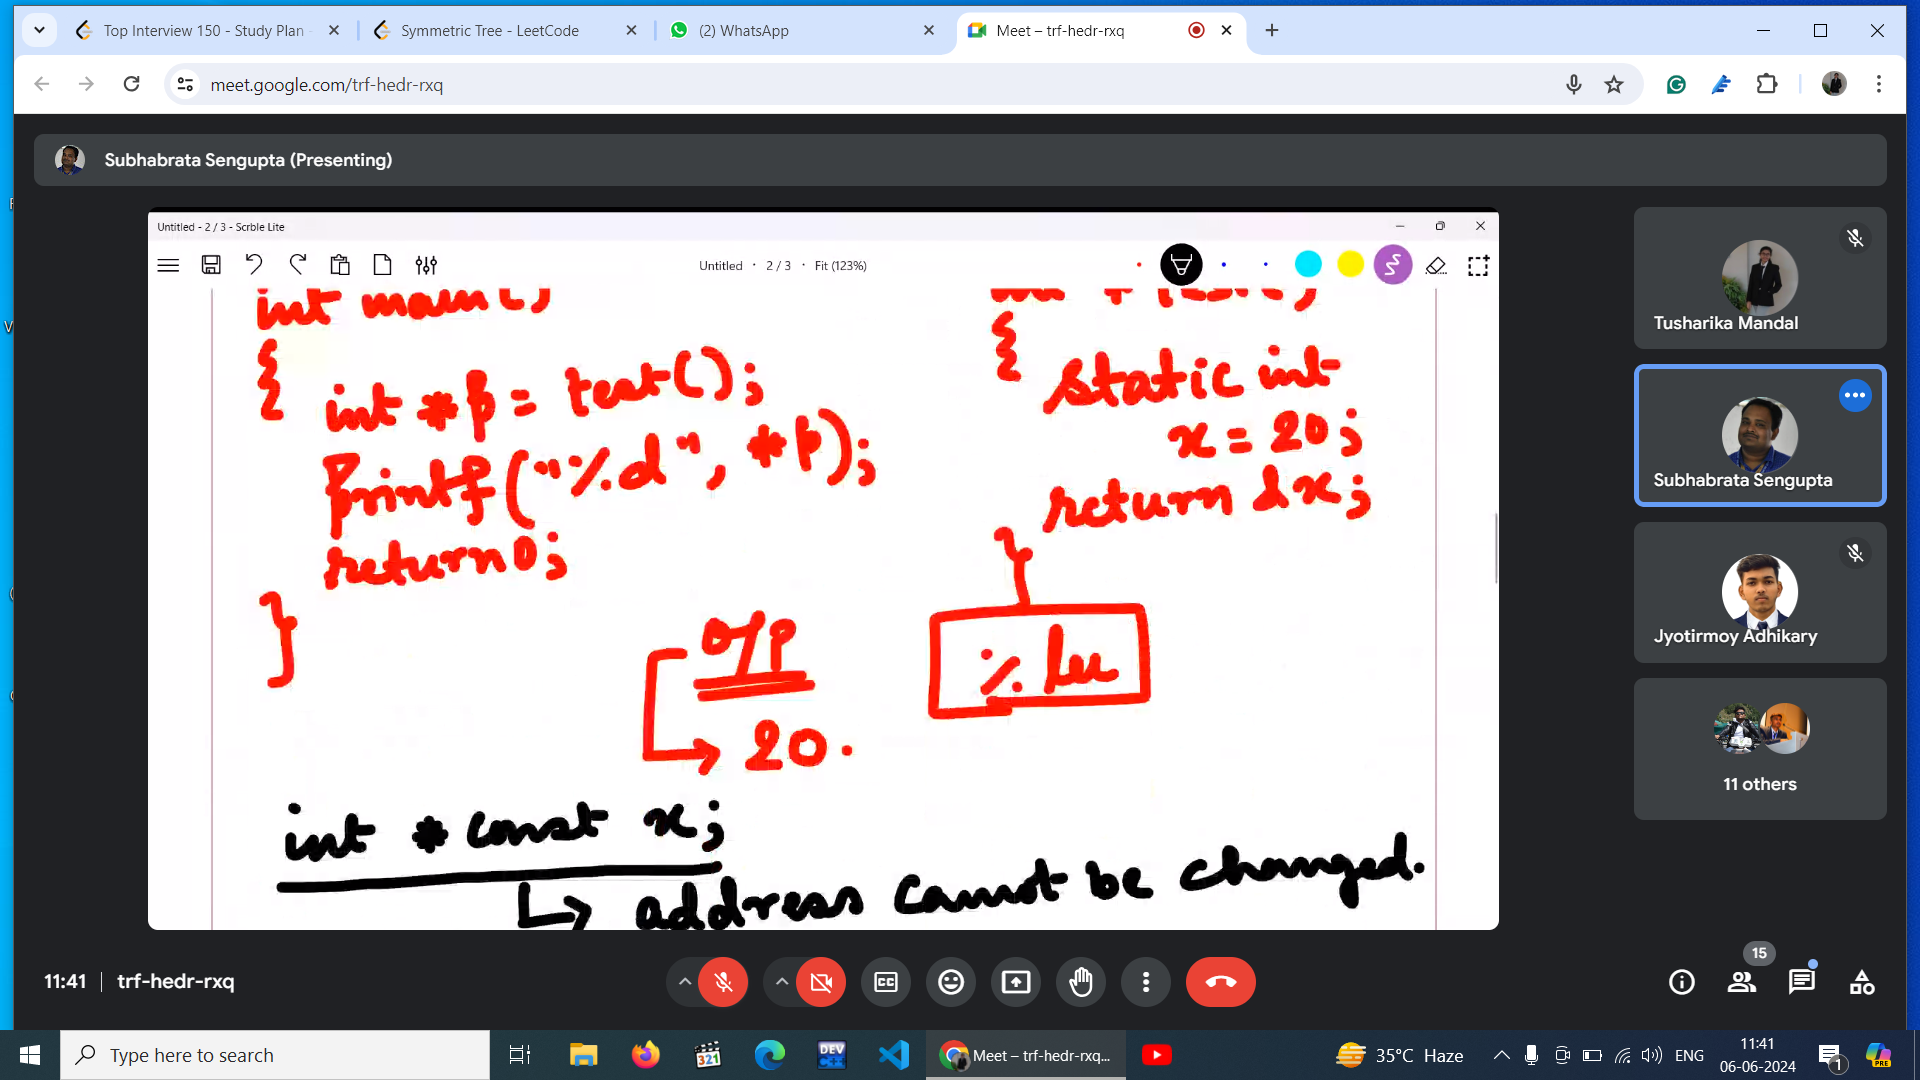 Top Interview 150 - Study Plan
Symmetric Tree - LeetCode
(2) WhatsApp
Meet – trf-hedr-rxq
meet.google.com/trf-hedr-rxq
Subhabrata Sengupta (Presenting)
Untitled - 2 / 3 - Scrble Lite
Untitled · 2 / 3 · Fit (123%)
int main()
{
int *p = test();
printf("%d", *p);
return 0;
}
{
static int
x = 20;
return &x;
}
% lu
O/p
20.
int * const x;
address cannot be changed.
Tusharika Mandal
Subhabrata Sengupta
Jyotirmoy Adhikary
11 others
11:41 | trf-hedr-rxq
CC
15
Type here to search
321
DEV
C++
Meet – trf-hedr-rxq...
35°C Haze
ENG
11:41
06-06-2024
1
PRE